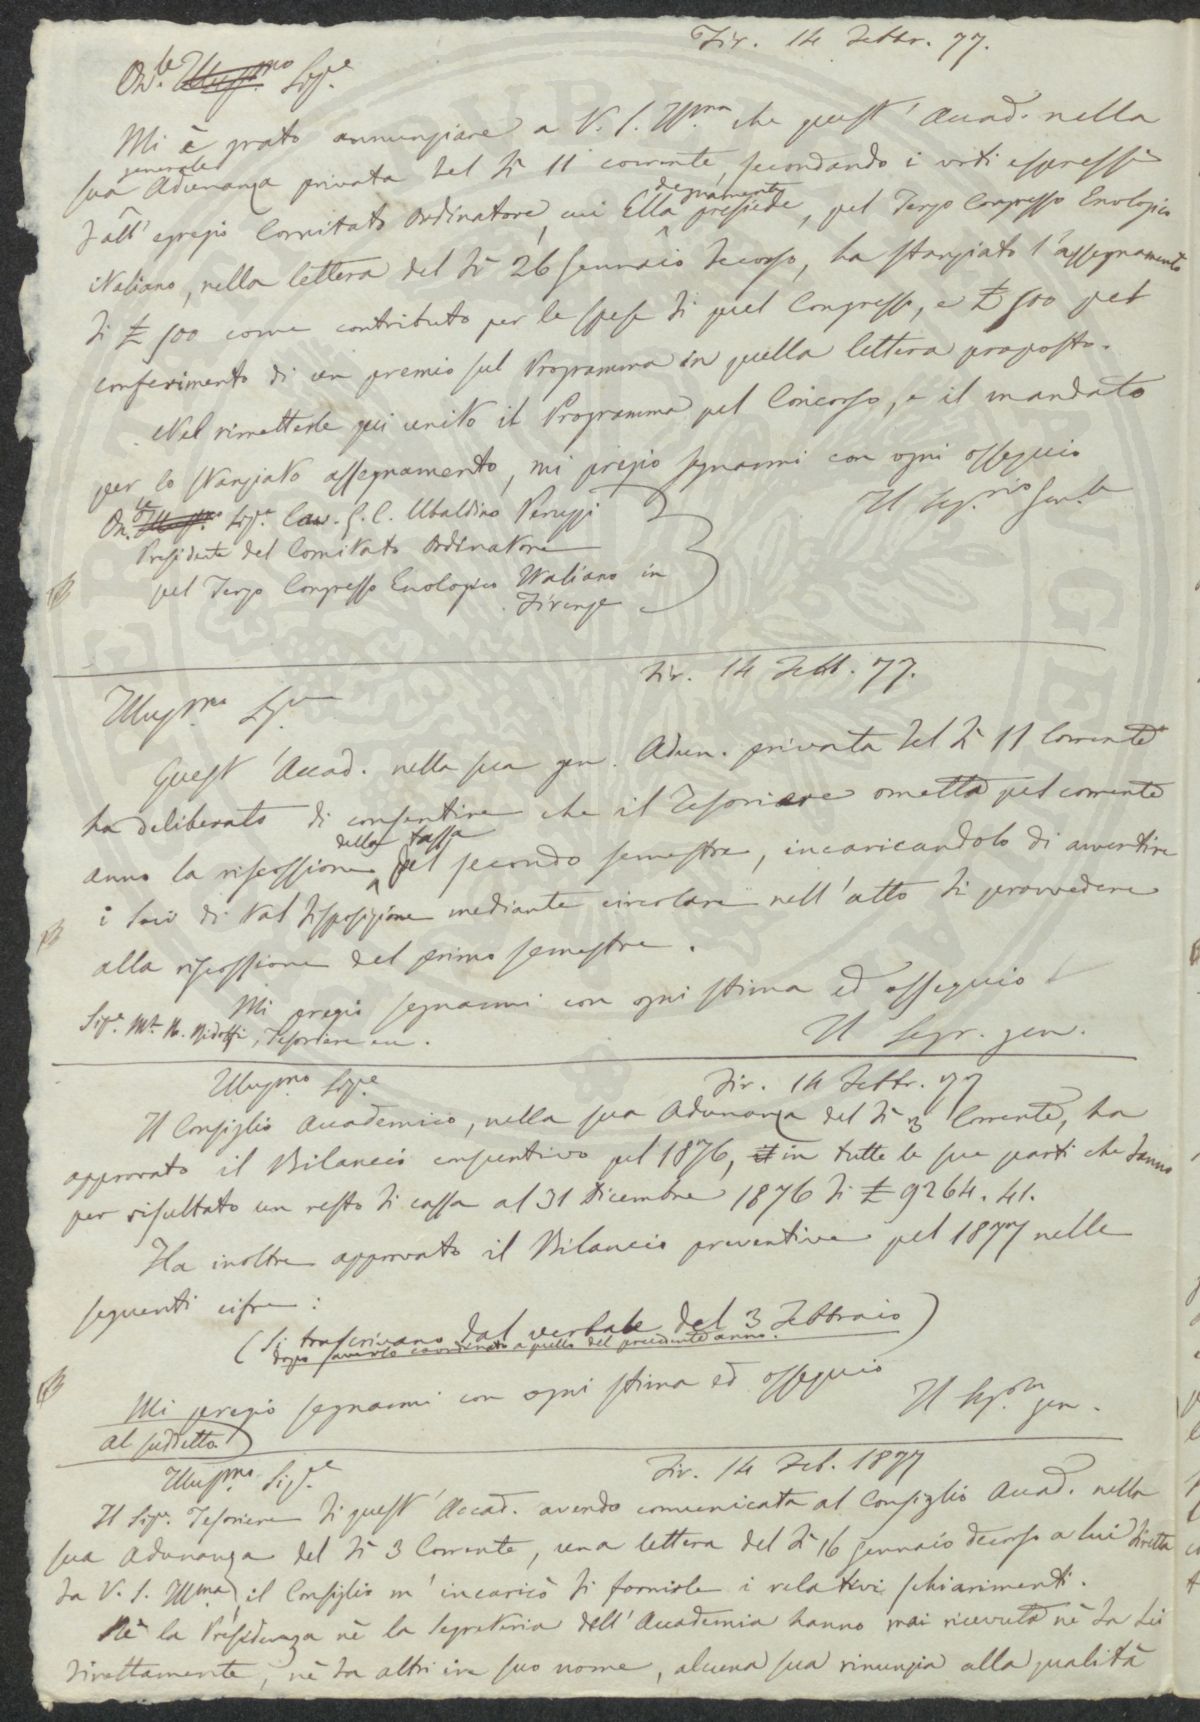 Fir. 14 Febbr. 77.
On.le Sig.e
Mi è grato annunziare a V. S. Ill.ma che quest'Accad. nella
sua generale Adunanza privata del dì 11 corrente, secondando i voti espressi
dall'egregio Comitato Ordinatore, cui Ella degnamente presiede, pel Terzo Congresso Enologico
italiano, nella lettera del dì 26 Gennaio decorso, ha stanziato l'assegnamento
di £ 500 come contributo per le spese di quel Congresso, e £ 500 pel
conferimento di un premio sul Programma in quella lettera proposto.
Nel rimetterle qui unito il Programma pel Concorso, e il mandato
per lo stanziato assegnamento, mi pregio segnarmi con ogni ossequio
Il Seg.rio Gen.le
On.le Sig.e Cav. G. C. Ubaldino Peruzzi
Presidente del Comitato Ordinatore
pel Terzo Congresso Enologico Italiano in
Firenze
Fir. 14 Febb. 77.
Illus.mo Sig.re
Quest'Accad. nella sua gen. Adun. privata del dì 11 Corrente
ha deliberato di consentire che il Tesoriere ometta pel corrente
anno la riscossione della tassa pel secondo semestre, incaricandolo di avvertire
i Soci di tal disposizione mediante circolare nell'atto di provvedere
alla riscossione del primo semestre.
Mi pregio segnarmi con ogni stima ed ossequio
Sig.e M.se N. Ridolfi, Tesoriere ec.
Il Segr. gen.
Illus.mo Sig.e
Fir. 14 Febbr. 77
Il Consiglio Accademico, nella sua Adunanza del dì 3 Corrente, ha
approvato il Bilancio consuntivo pel 1876, in tutte le sue parti che danno
per risultato un resto di cassa al 31 Dicembre 1876 di £ 9264. 41.
Ha inoltre approvato il Bilancio preventivo pel 1877 nelle
seguenti cifre:
(Si trascrivano dal verbale del 3 Febbraio)
dopo averlo coordinato a quello del precedente anno.
Mi pregio segnarmi con ogni stima ed ossequio
Il Seg.rio gen.
al suddetto
Illus.mo Sig.re
Fir. 14 Feb. 1877
Il Sig.r Tesoriere di quest'Accad. avendo comunicata al Consiglio Accad. nella
sua Adunanza del dì 3 Corrente, una lettera del dì 16 Gennaio decorso a lui diretta
da V. S. Ill.ma, il Consiglio m'incaricò di fornirle i relativi schiarimenti.
Nè la Presidenza nè la Segreteria dell'Accademia hanno mai ricevuta nè da Lei
direttamente, nè da altri in suo nome, alcuna sua rinunzia alla qualità